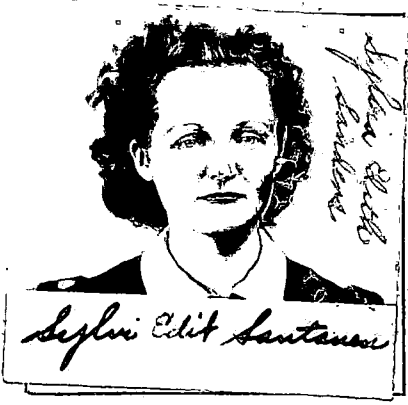 Sylvia Edith
Sandens
Sylvi Edit Santanen